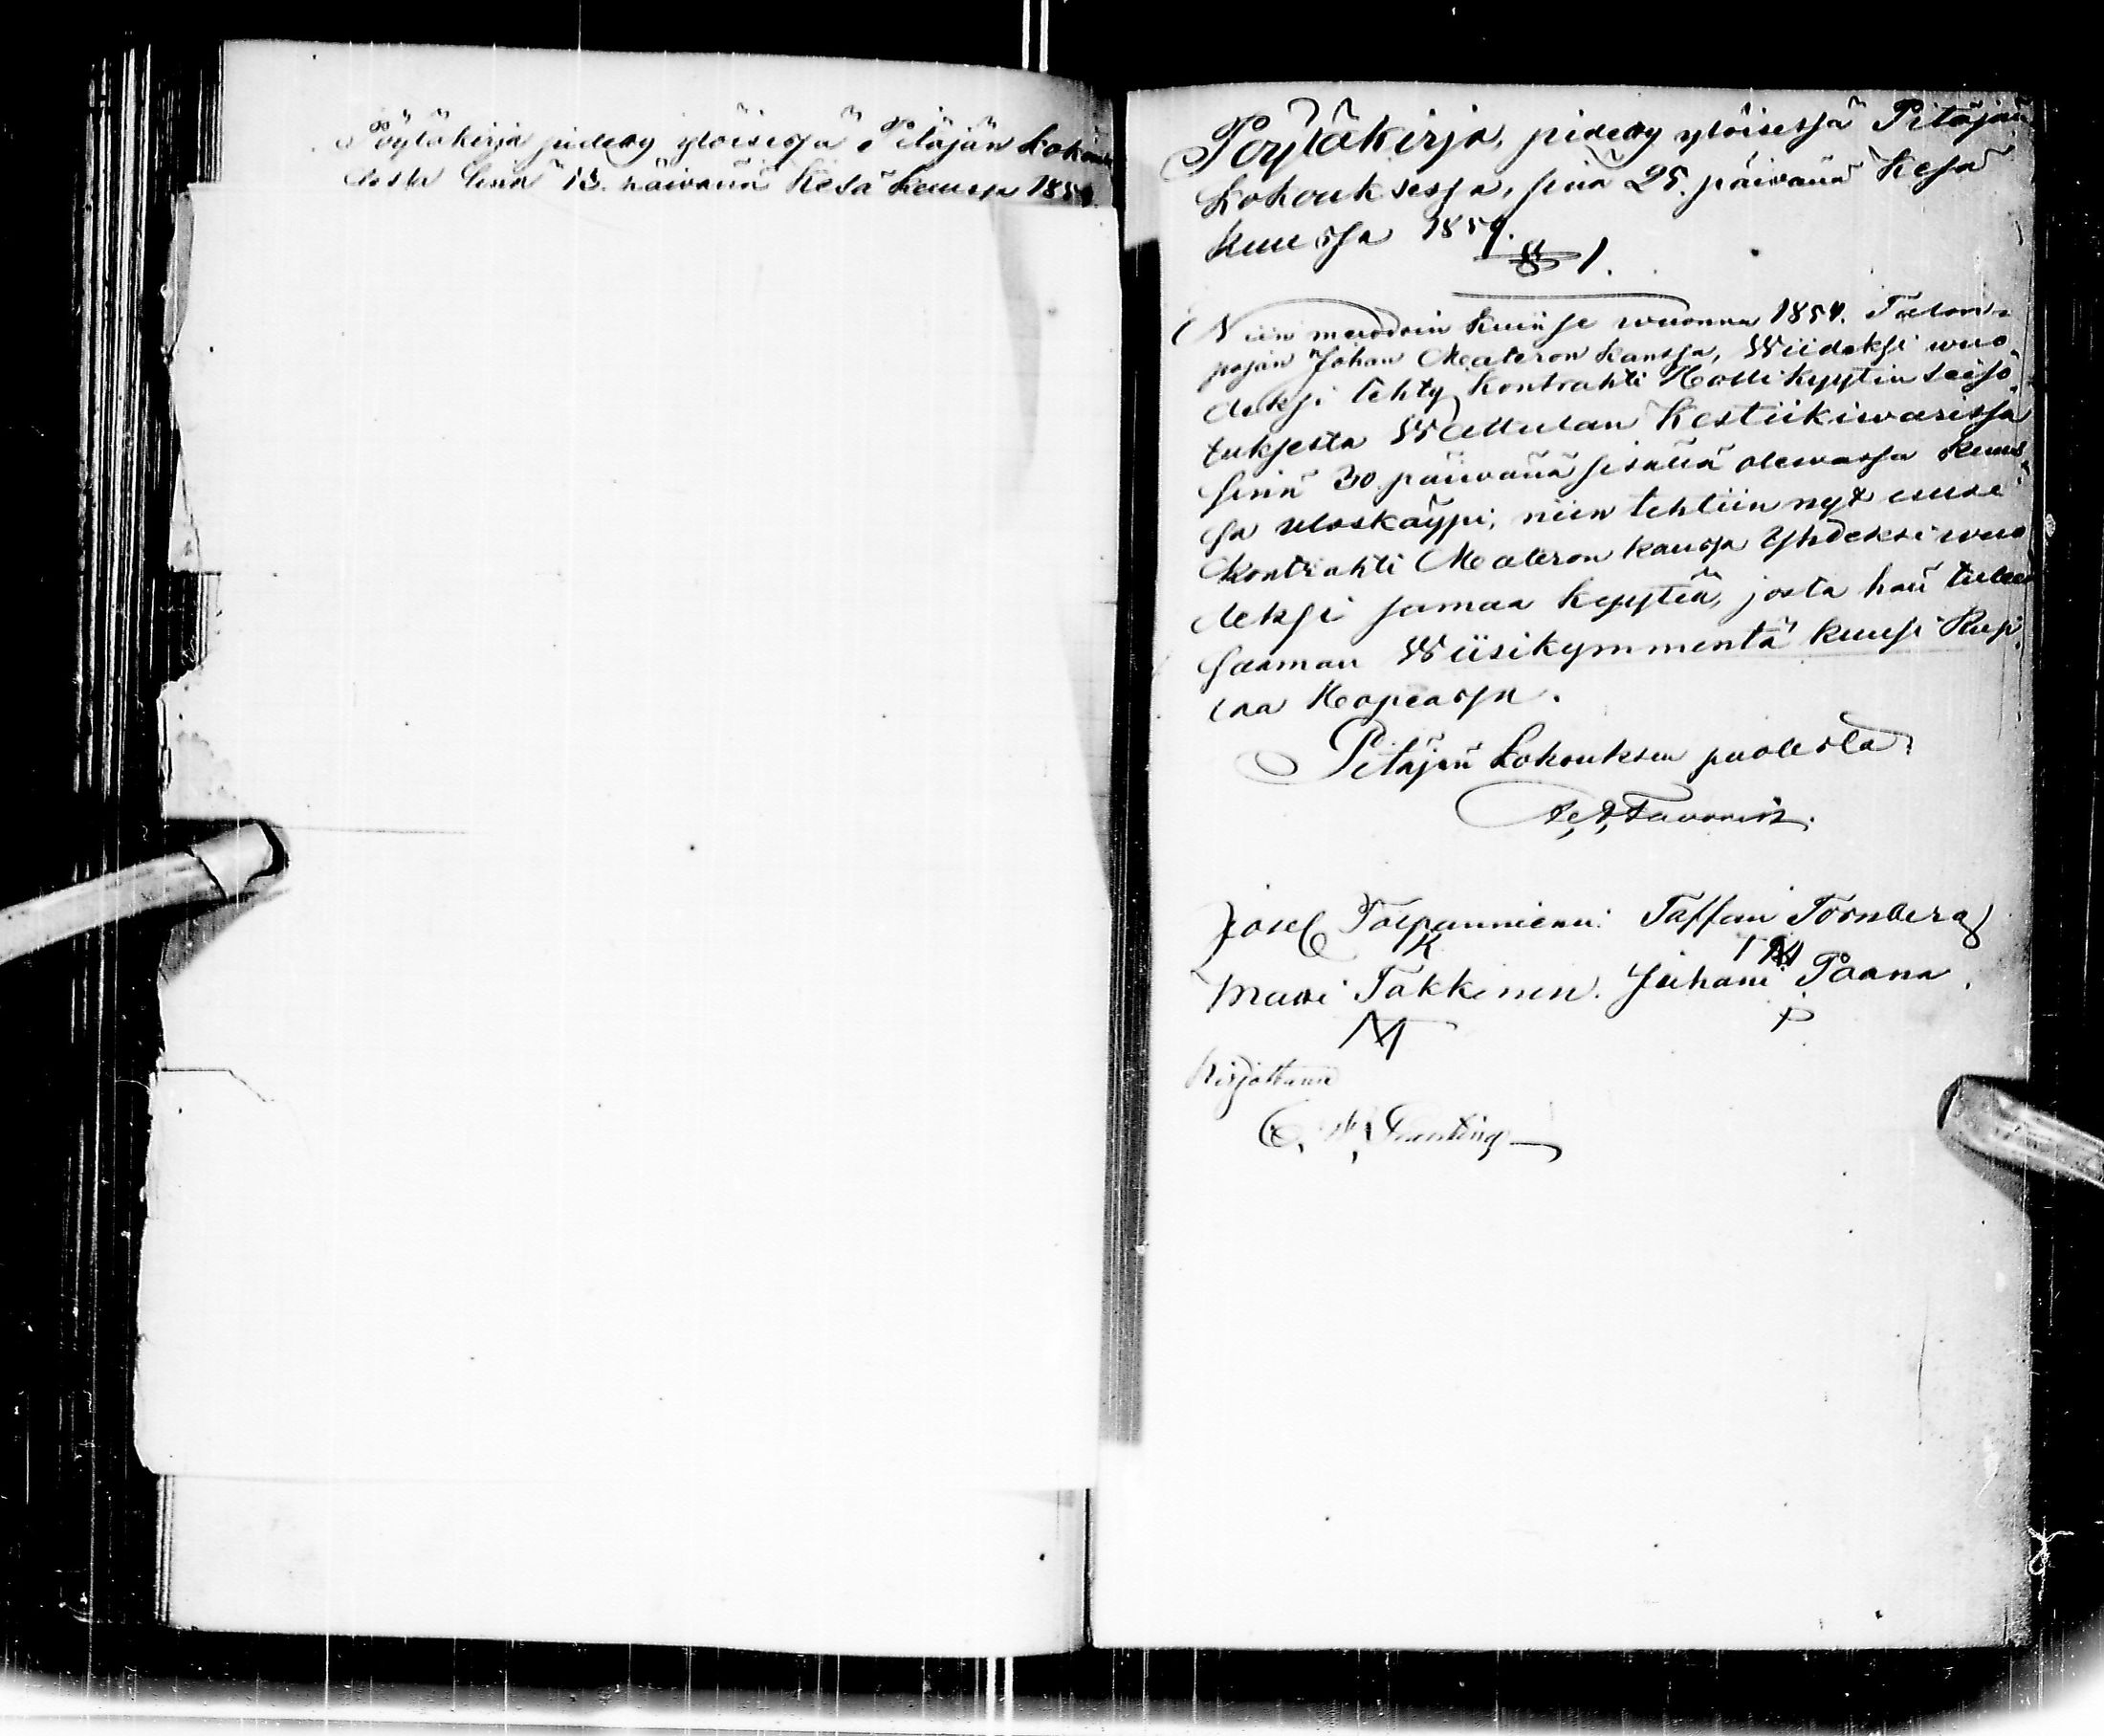 Pöytäkirja pidetty ylöisessä Pitäjän kokouk
sesta sinä 13. päivänä Kesä kuussa 185
Pöytäkirja, pidetty ylöisessä Pitäjän
kokouksessa, sinä 25. päivänä Kesä
kuussa 1859.
§ 1.
Niin muodoin kuin se wuonna 1854. Talon-
pojan Johan Materon kanssa, Wiideksi wuo
deksi tehty Kontrahti Hollikyytin seiso
tuksesta Wallulan Kestiikiwarissa
sinä 30 päiwänä sisällä olewassa kuus
sa uloskäypi; niin tehtiin nyt uusi
Kontrahti Materon kanssa Yhdeksi wuo
deksi samaa kyytiä, josta hän tulee
saaman Wiisikymmentä kuusi Rup
laa Hopeassa.
Pitäjän Kokouksen puolesta:
Josef Toepanniemi Taffan Tornberg
K
Matti Takkinen. Juhani Paana.
M
P
Kirjottanut